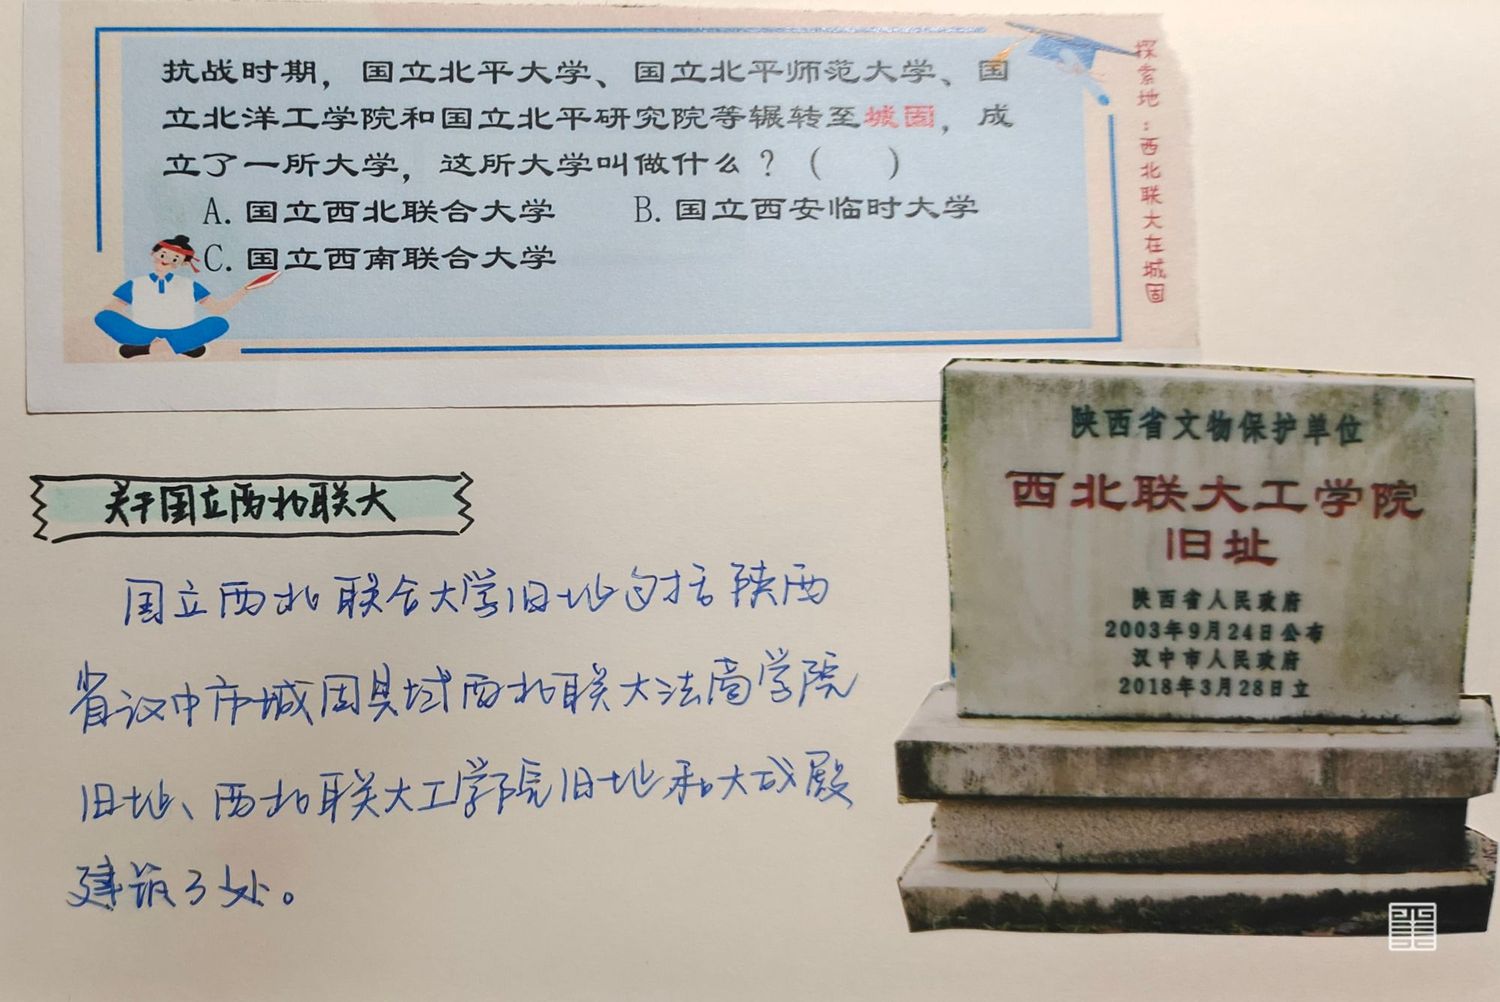 抗战时期，国立北平大学、国立北平师范大学、国
立北洋工学院和国立北平研究院等辗转至城固，成
立了一所大学，这所大学叫做什么？（　　）
A.国立西北联合大学　　B.国立西安临时大学
C.国立西南联合大学
探索地：西北联大在城固
关于国立西北联大
国立西北联合大学旧址包括陕西
省汉中市城固县域西北联大法商学院
旧址、西北联大工学院旧址和大成殿
建筑3处。
陕西省文物保护单位
西北联大工学院
旧址
陕西省人民政府
2003年9月24日公布
汉中市人民政府
2018年3月28日立